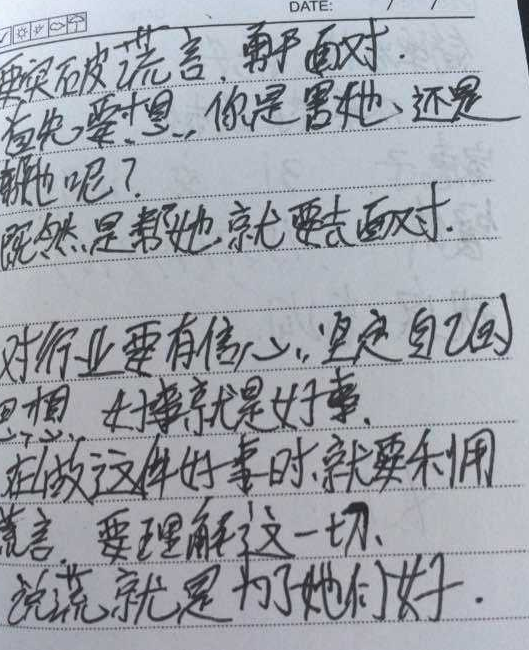 DATE: / /
要突破谎言、勇于面对.
首先要想、你是害她、还是
帮她呢?
既然是帮她就要去面对.
对行业要有信心、坚定自己的
思想、好事就是好事、
在做这件好事时、就要利用
谎言、要理解这一切、
说谎就是为了她们好.